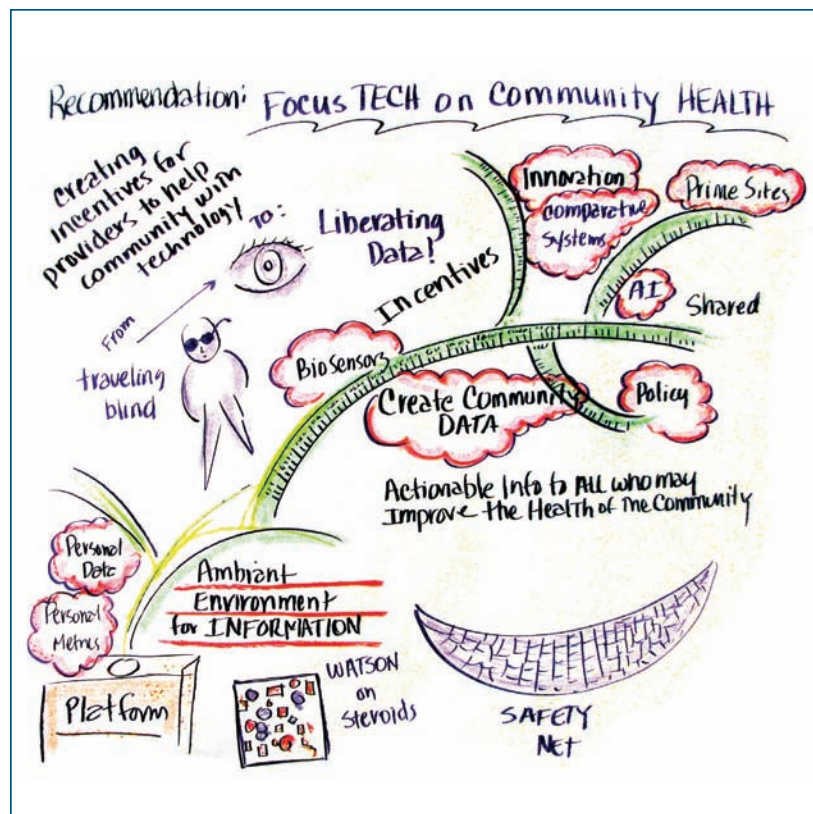 Recommendation: Focus TECH on Community HEALTH
Creating
Incentives for
providers to help
community with
technology
TO:
From
traveling
blind
Liberating
Data!
Incentives
Innovation
Comparative
Systems
Prime Sites
AI
Shared
BioSensors
Create Community
DATA
Policy
Actionable Info to ALL who may
Improve the Health of The Community
Personal
Data
Personal
Metrics
Ambiant
Environment
for INFORMATION
Platform
WATSON
on
Steroids
SAFETY
NET